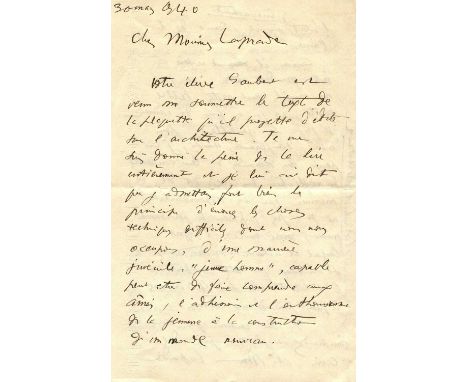 30 mars 1940
Cher Monsieur Laprade
Votre élève Gaubert est
venu me soumettre le texte de
la plaquette qu'il projette d'éditer
sur l'architecture. Je me
suis donné la peine de la lire
entièrement et je lui ai dit
que j'admettais fort bien le
principe d'énoncer les choses
techniques difficiles dont nous nous
occupons, d'une manière
juvénile, "jeune homme", capable
peut-être de faire comprendre aux
aînés, l'adhésion et l'enthousiasme
de la jeunesse à la construction
d'un monde nouveau.